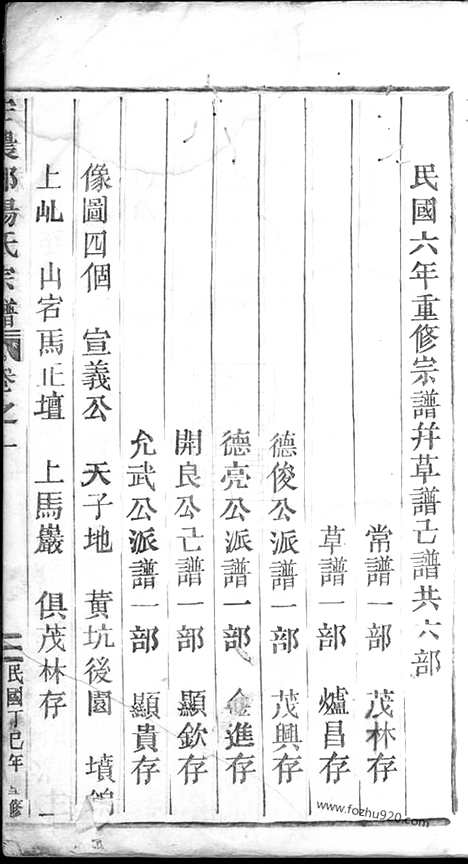 民國六年重修宗譜幷草譜己譜共六部
常譜一部 茂林存
草譜一部 爐昌存
德俊公派譜一部 茂興存
德亮公派譜一部 金進存
開良公己譜一部 顯欽存
允武公派譜一部 顯貴存
像圖四個 宣義公 天子地 黃坑後園 墳
上屿 山宕馬正壇 上馬巖 俱茂林存
農郡楊氏宗譜 卷之一 民國丁巳年 修
www.fozhu920.com